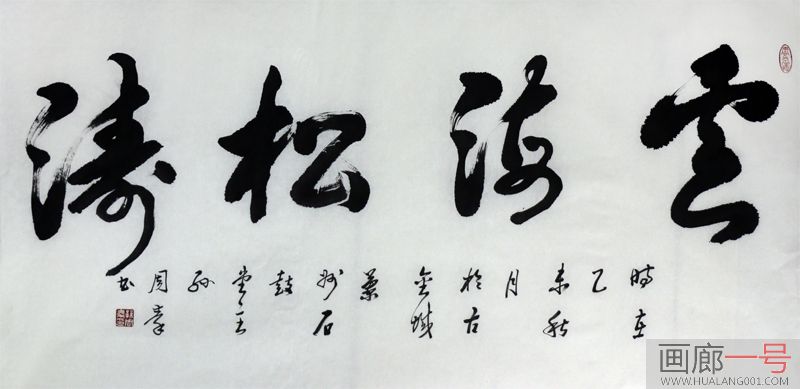 雲海松涛
時在
乙
未秋
月
於古
金城
蘭
州石
鼓
堂王
孙
周
书
画廊一号
WWW.HUALANG001.COM